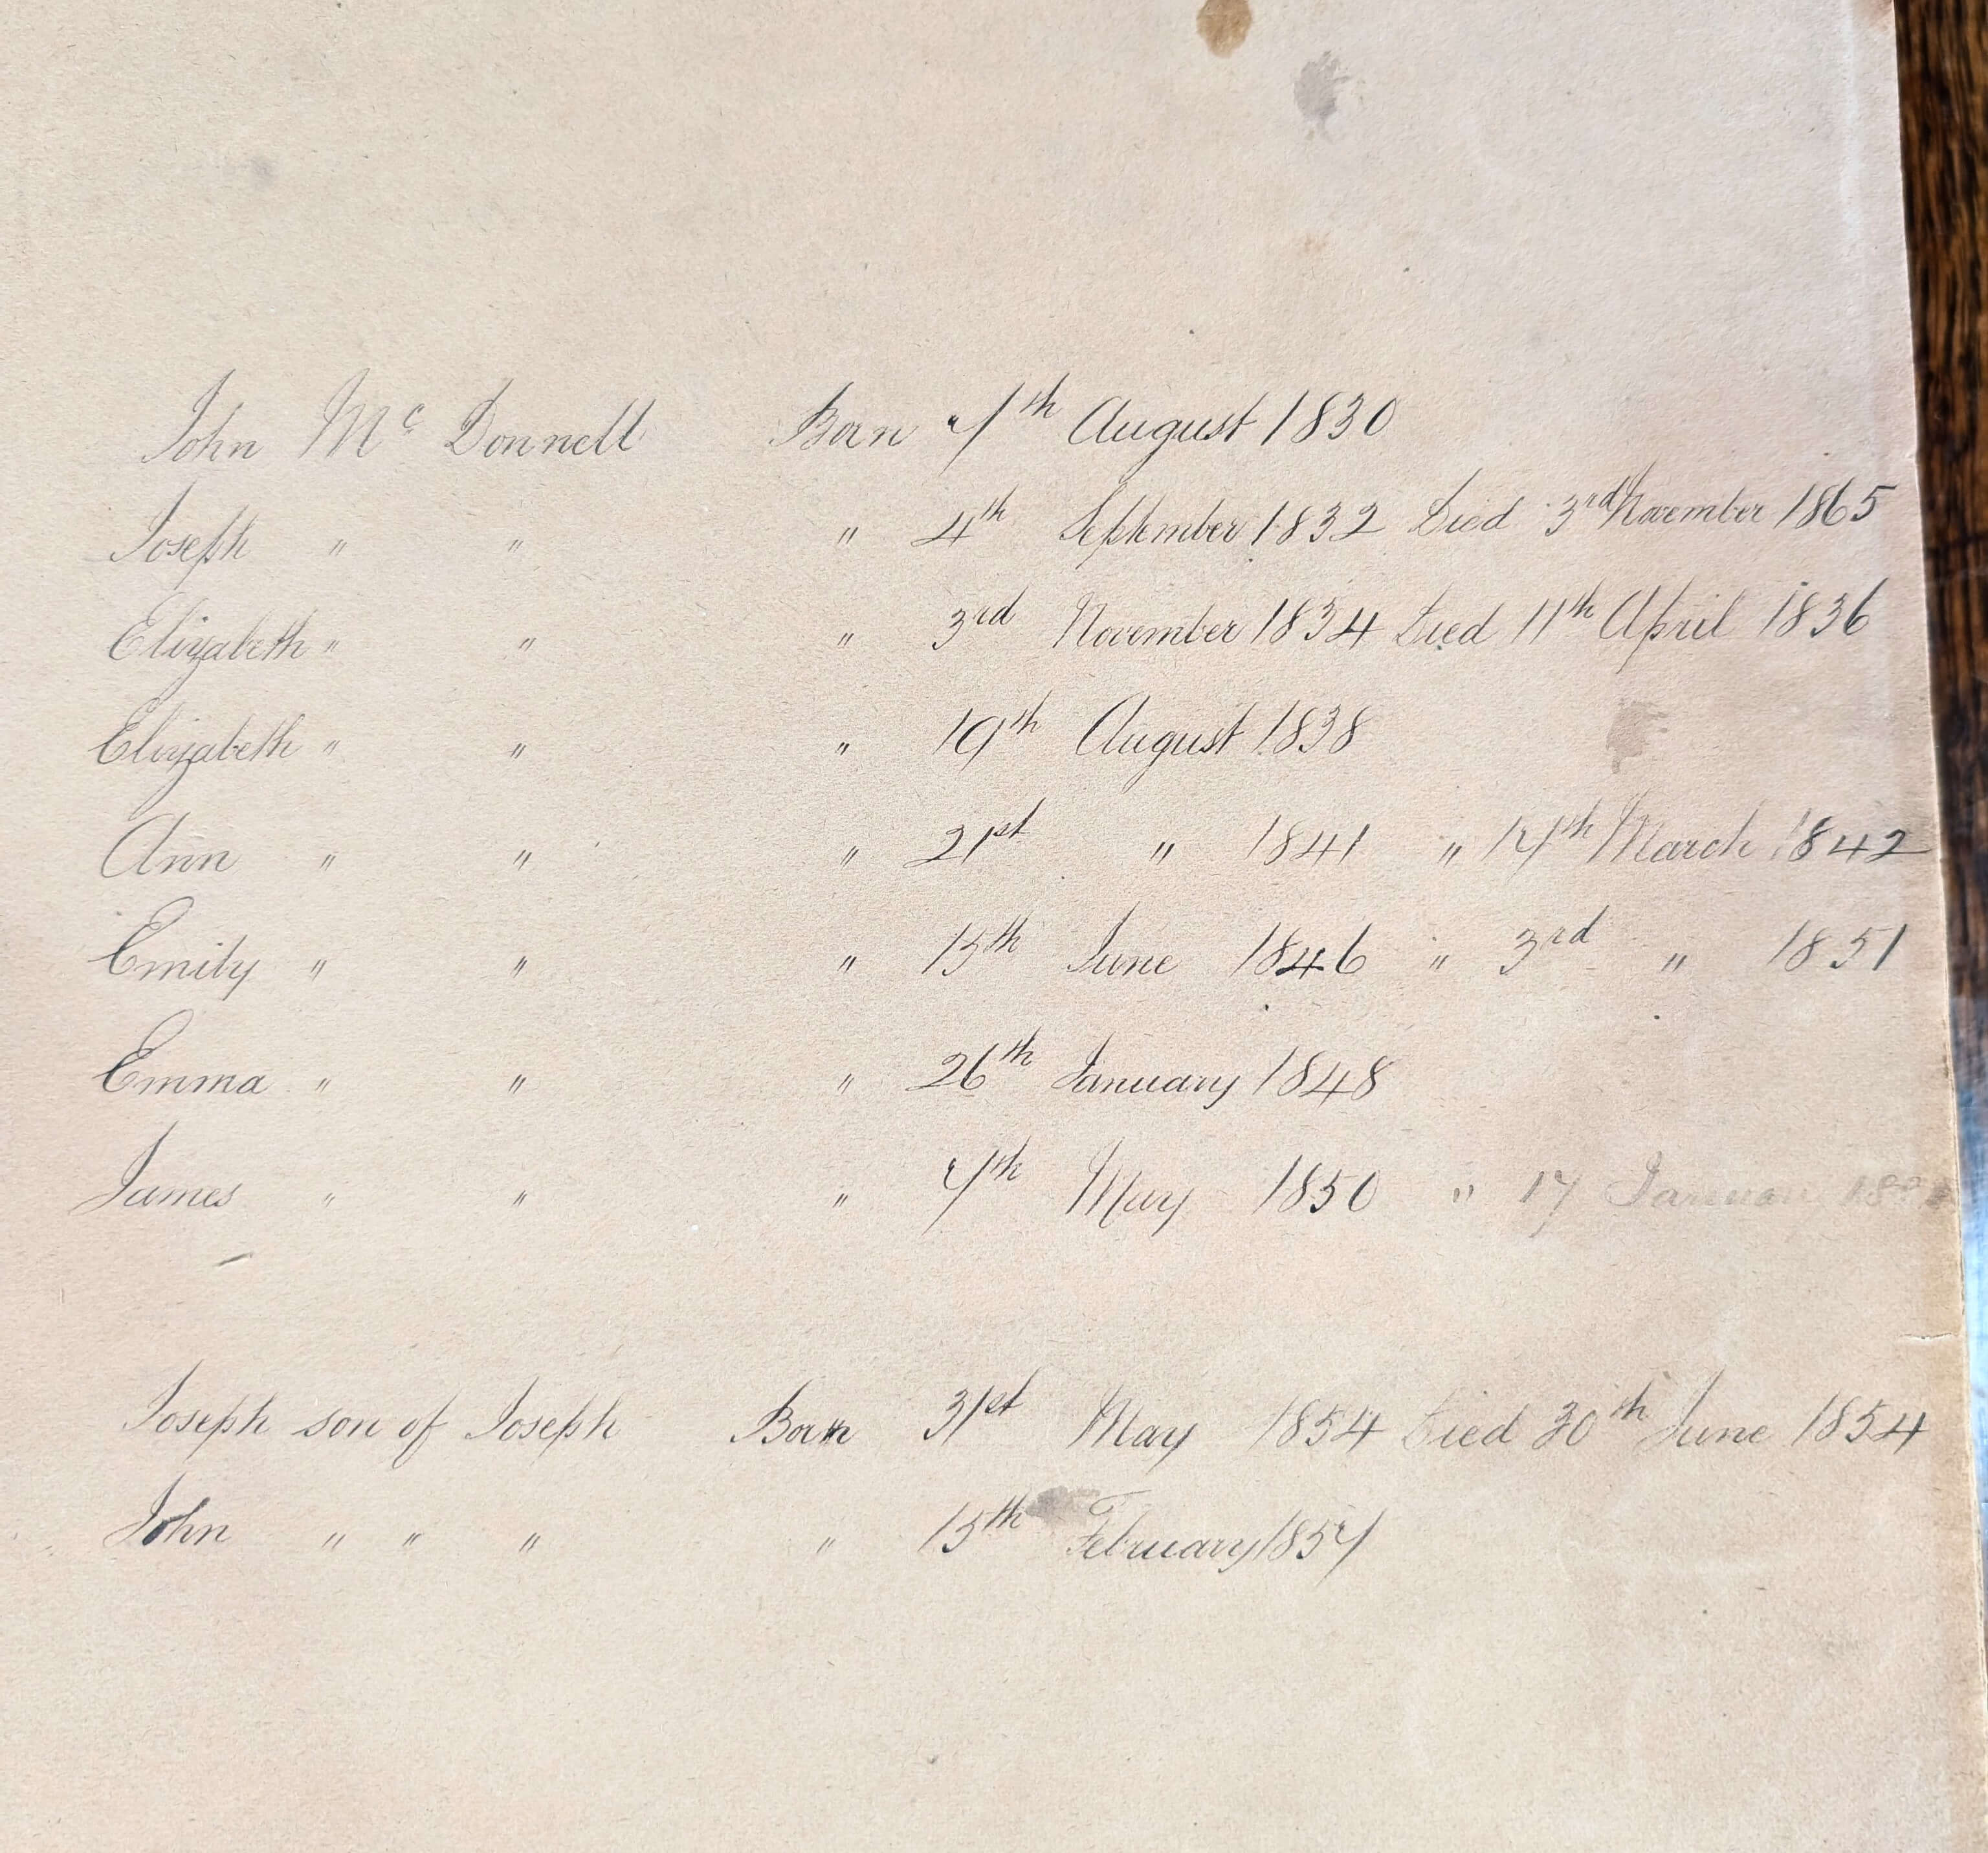 John Mc Donnell Born 7th August 1830
Joseph " " " 4th September 1832 Died 3rd November 1865
Elizabeth " " " 3rd November 1834 Died 11th April 1836
Elizabeth " " " 19th August 1838
Ann " " " 21st " 1841 " 17th March 1842
Emily " " " 15th June 1846 " 3rd " 1851
Emma " " " 26th January 1848
James " " " 7th May 1850 " 17
Joseph son of Joseph Born 31st May 1854 Died 30th June 1854
John " " " " 15th February 1857